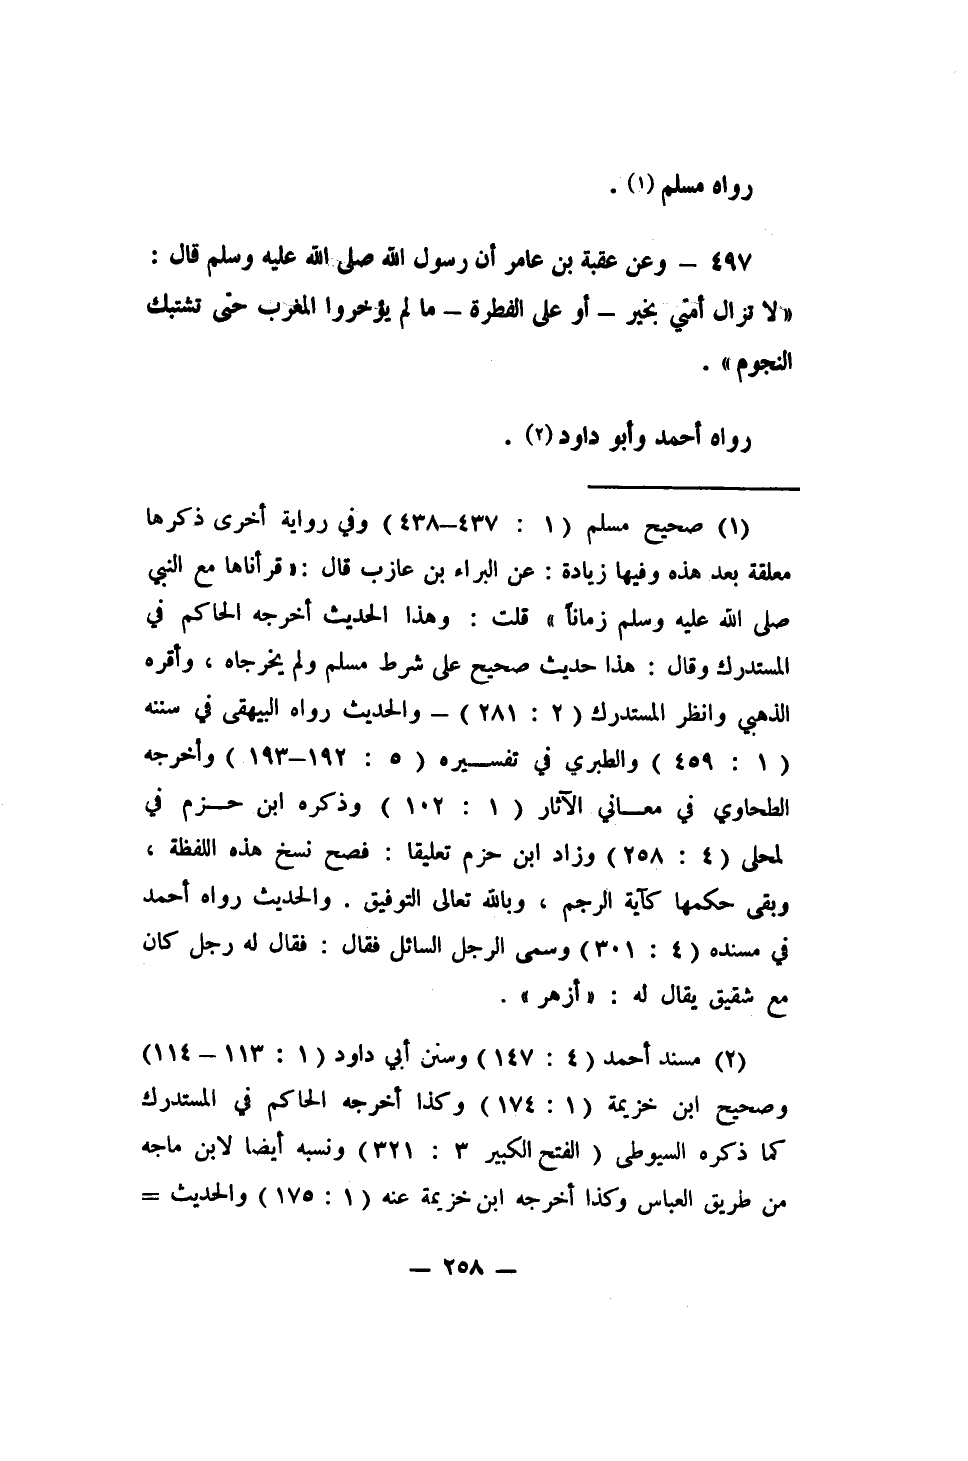 رواه مسلم (١) .
٤٩٧ – وعن عقبة بن عامر أن رسول الله صلى الله عليه وسلم قال :
« لا تزال أمتي بخير – أو على الفطرة – ما لم يؤخروا المغرب حتى تشتبك
النجوم » .
رواه أحمد وأبو داود (٢) .
(١) صحيح مسلم ( ١ : ٤٣٧–٤٣٨ ) وفي رواية أخرى ذكرها
معلقة بعد هذه وفيها زيادة : عن البراء بن عازب قال : « قرأناها مع النبي
صلى الله عليه وسلم زماناً » قلت : وهذا الحديث أخرجه الحاكم في
المستدرك وقال : هذا حديث صحيح على شرط مسلم ولم يخرجاه ، وأقره
الذهبي وانظر المستدرك ( ٢ : ٢٨١ ) – والحديث رواه البيهقى في سننه
( ١ : ٤٥٩ ) والطبري في تفسيره ( ٥ : ١٩٢–١٩٣ ) وأخرجه
الطحاوي في معاني الآثار ( ١ : ١٠٢ ) وذكره ابن حزم في
لمحلى ( ٤ : ٢٥٨ ) وزاد ابن حزم تعليقا : فصح نسخ هذه اللفظة ،
وبقى حكمها كآية الرجم ، وبالله تعالى التوفيق . والحديث رواه أحمد
في مسنده ( ٤ : ٣٠١ ) وسمى الرجل السائل فقال : فقال له رجل كان
مع شقيق يقال له : « أزهر » .
(٢) مسند أحمد ( ٤ : ١٤٧ ) وسنن أبي داود ( ١ : ١١٣ – ١١٤)
وصحيح ابن خزيمة ( ١ : ١٧٤ ) وكذا أخرجه الحاكم في المستدرك
كما ذكره السيوطى ( الفتح الكبير ٣ : ٣٢١ ) ونسبه أيضا لابن ماجه
من طريق العباس وكذا أخرجه ابن خزيمة عنه ( ١ : ١٧٥ ) والحديث =
– ٢٥٨ –